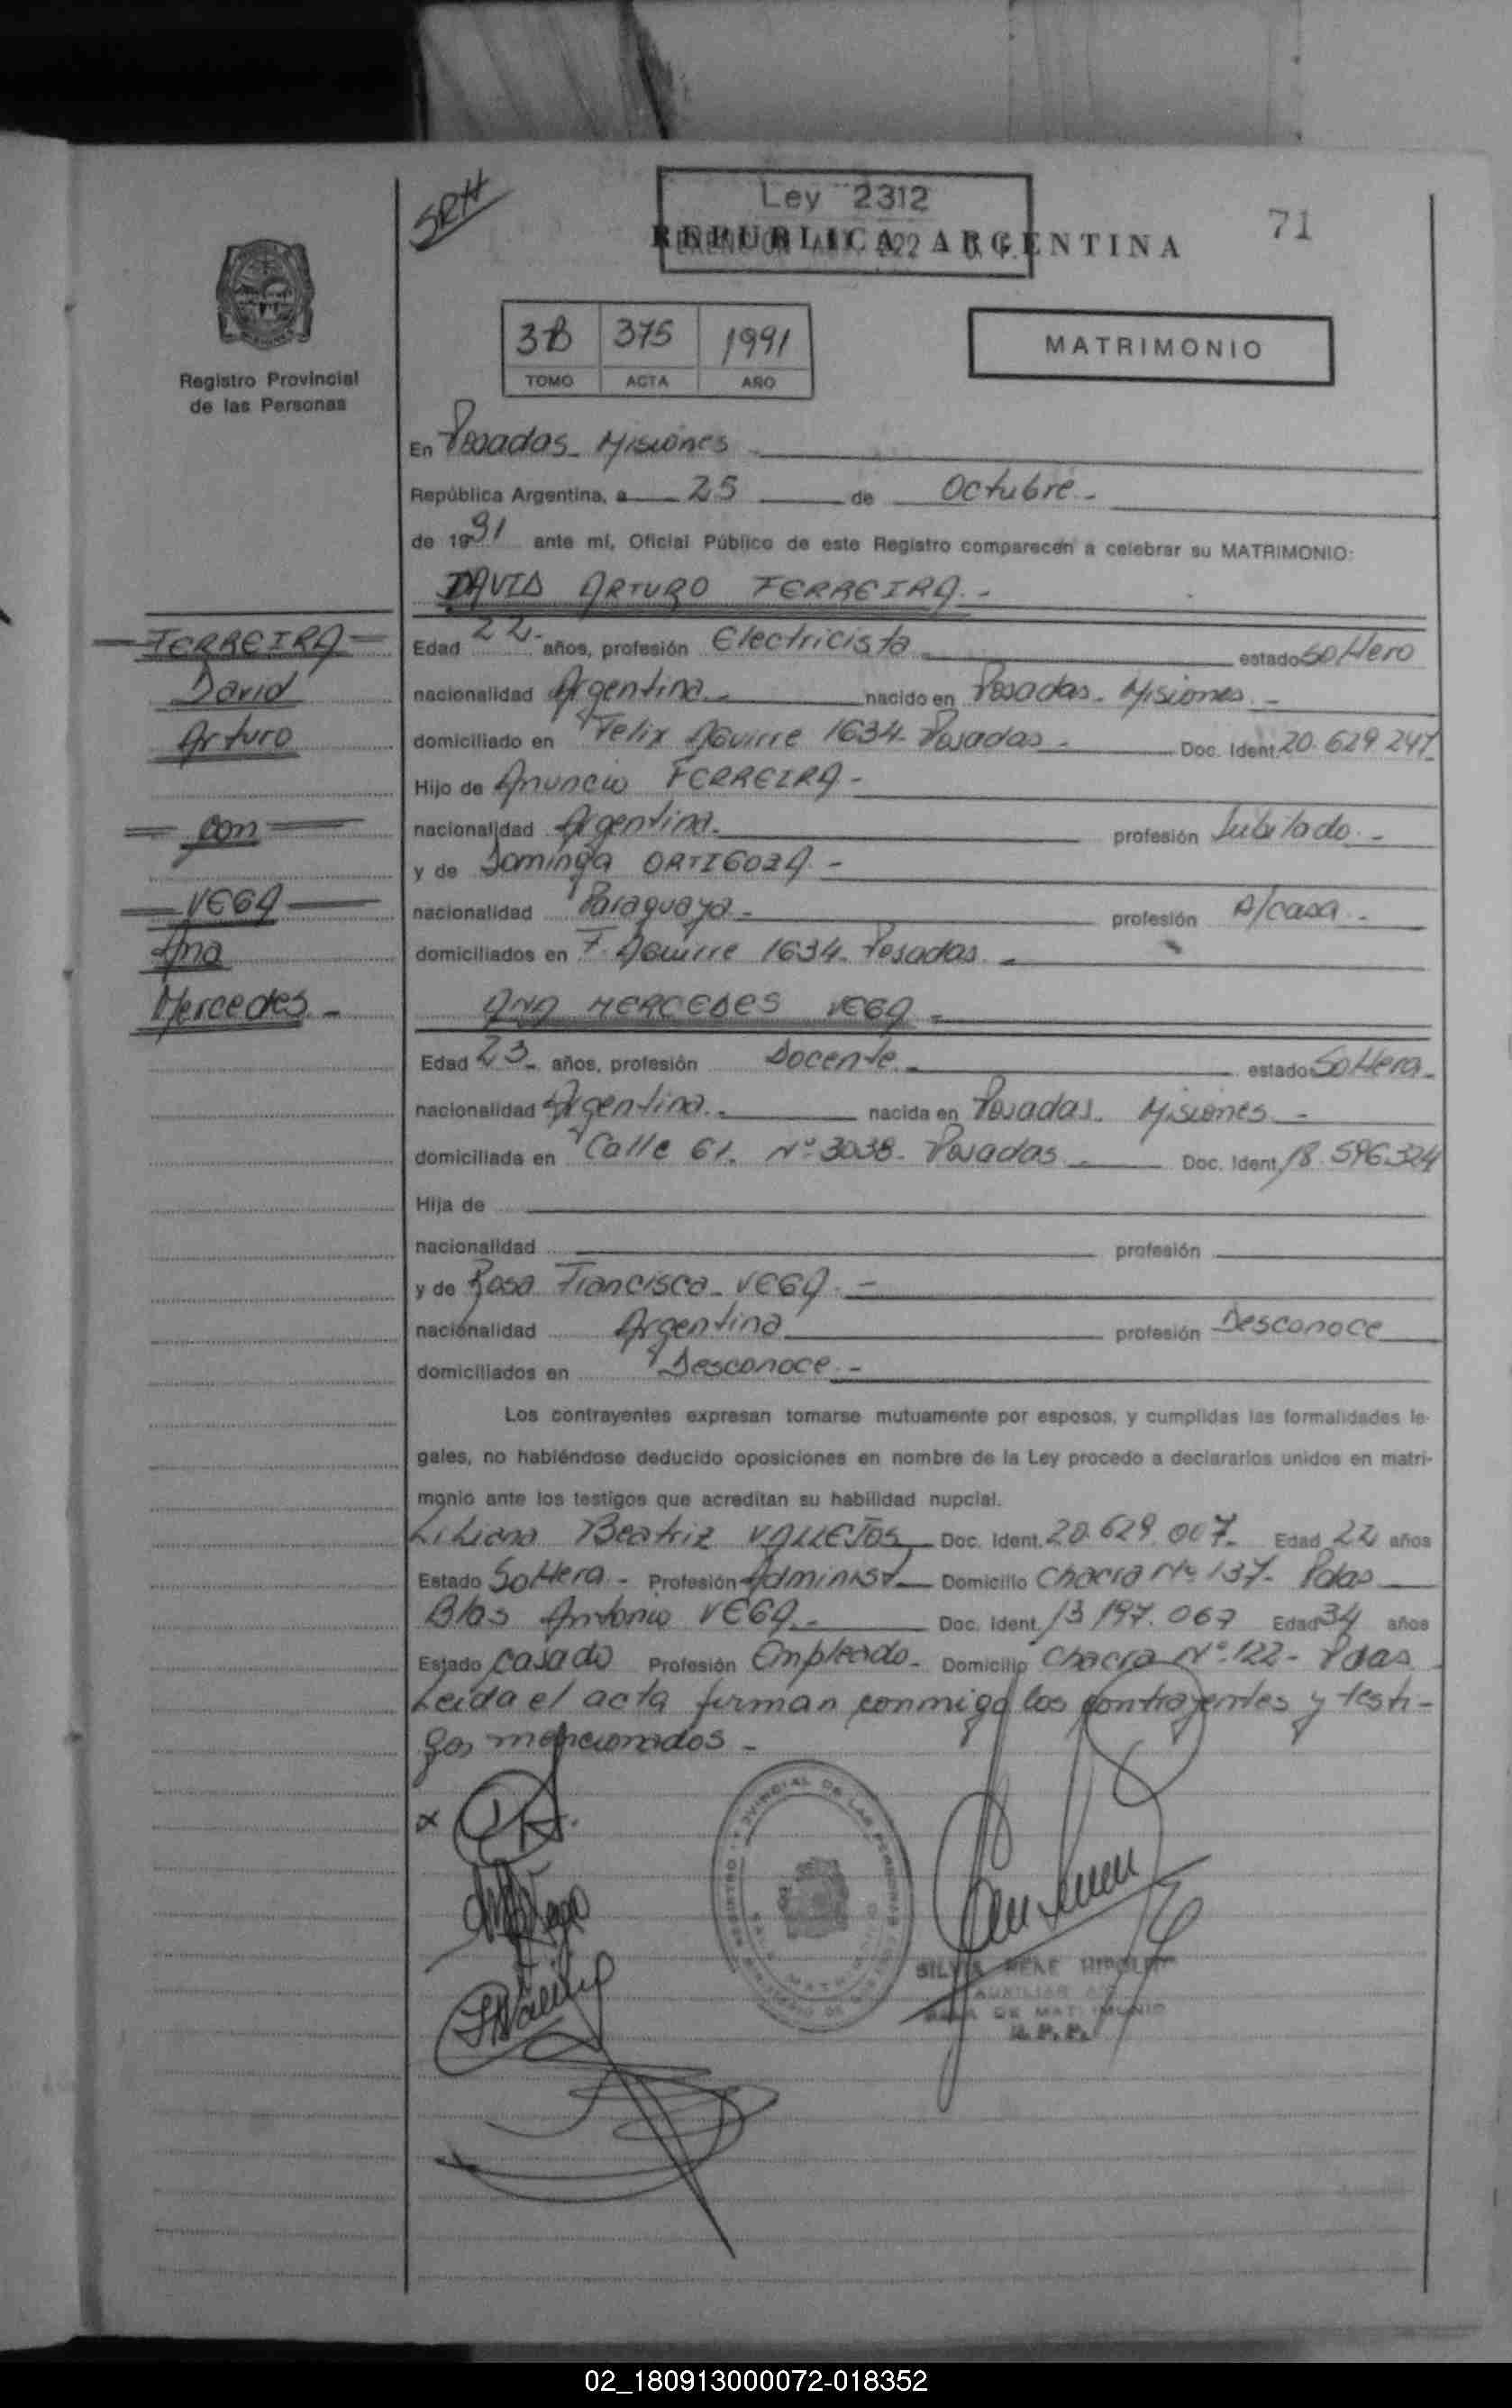 SRH
Ley 2312
REPUBLICA ARGENTINA
71
Registro Provincial
de las Personas
3B 375 1991
TOMO ACTA AÑO
MATRIMONIO
En Posadas - Misiones
República Argentina, a 25 de Octubre.-
de 1991 ante mí, Oficial Público de este Registro comparecen a celebrar su MATRIMONIO:
DAVID ARTURO FERREIRA.-
FERREIRA
David
Arturo
con
VEGA
Ana
Mercedes.-
Edad 22- años, profesión Electricista estado Soltero
nacionalidad Argentina.- nacido en Posadas - Misiones.-
domiciliado en Felix Aguirre 1634- Posadas- Doc. Ident. 20.629.247
Hijo de Anuncio FERREIRA-
nacionalidad Argentina. profesión Jubilado.-
y de Dominga ORTIGOZA.-
nacionalidad Paraguaya- profesión A/casa.-
domiciliados en F. Aguirre 1634- Posadas.-
ANA MERCEDES VEGA-
Edad 23- años, profesión Docente.- estado Soltera-
nacionalidad Argentina.- nacida en Posadas. Misiones.-
domiciliada en Calle 61. Nº 3038- Posadas.- Doc. Ident. 18.596.324
Hija de
nacionalidad profesión
y de Rosa Francisca- VEGA.-
nacionalidad Argentina profesión Desconoce
domiciliados en Desconoce.-
Los contrayentes expresan tomarse mutuamente por esposos, y cumplidas las formalidades le-
gales, no habiéndose deducido oposiciones en nombre de la Ley procedo a declararlos unidos en matri-
monio ante los testigos que acreditan su habilidad nupcial.
Liliana Beatriz VALLEJOS Doc. Ident. 20.629.007- Edad 22 años
Estado Soltera- Profesión Administ. Domicilio Chacra Nº 137- Pdas
Blas Antonio VEGA.- Doc. Ident. 13.197.067 Edad 34 años
Estado Casado Profesión Empleado- Domicilio Chacra Nº 122- Pdas
Leída el acta firman conmigo los contrayentes y testi-
gos mencionados-
REGISTRO PROVINCIAL DE LAS PERSONAS
SALA DE MATRIMONIO
R.P.P.
02_180913000072-018352